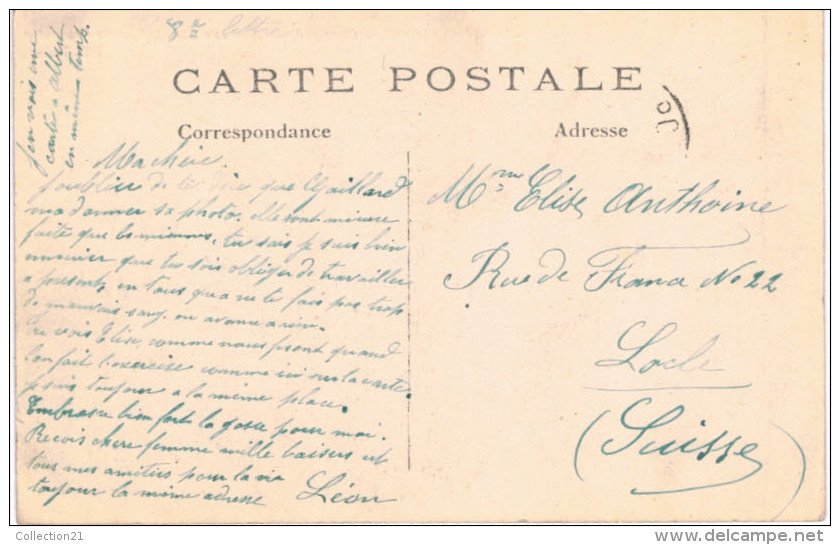 8e lettre
CARTE POSTALE
Correspondance
Adresse
J'envois une
carte a Albert
en même temp.
Ma chérie.
J'oublier de te dire que Gaillard
ma donner sa photo. elle sont mieux
faite que les miennes, tu sais je suis bien
ennuier que tu sois obliger de travailler
a present, en tous qua ne te fais pas trop
de mauvais sang. on avance a rien.
Tu vois Elise, comme nous front quand
l'on fait l'exercise comme ici sur la carte.
je suis toujour a la même place.
Embrasse bien fort la gosse pour moi.
Recois chere femme mille baisers et
tous mes amitiés pour la vie
toujour la même adresse Léon
Mme Elise Anthoine
Rue de France No 22
Locle
(Suisse)
Collection21
www.delcampe.net